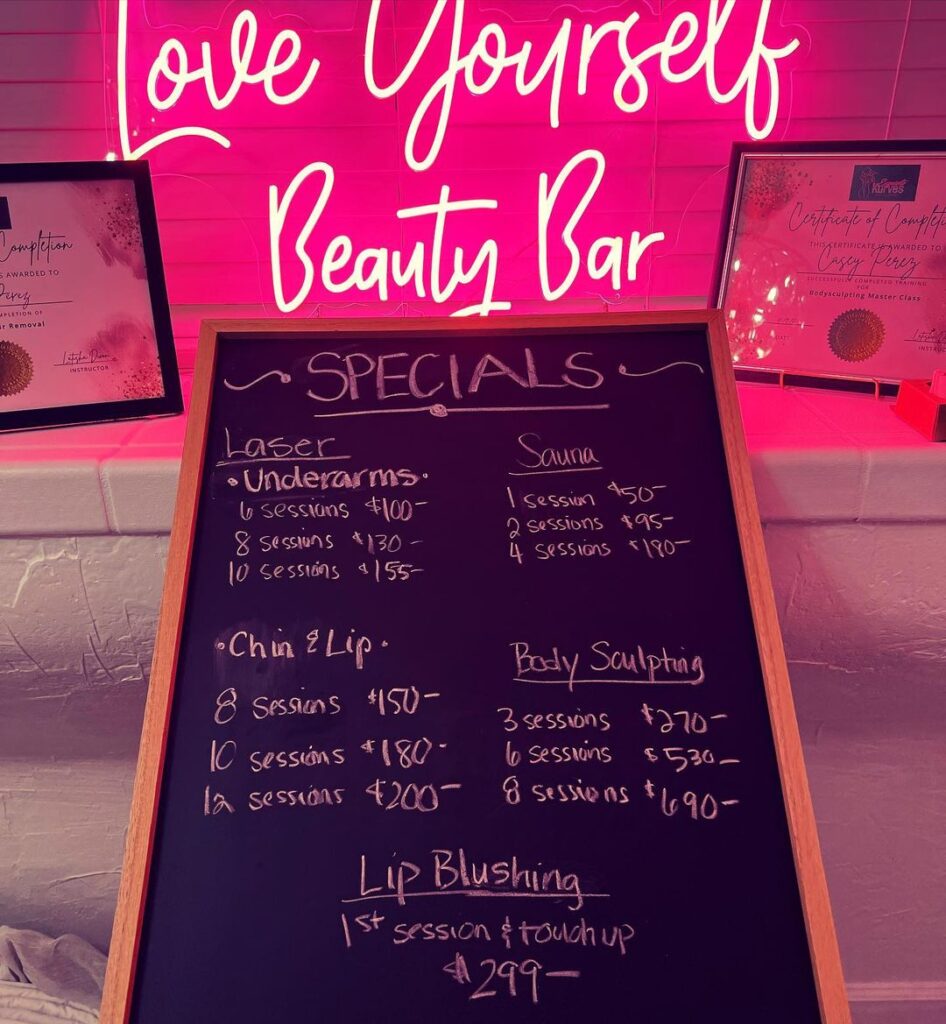 Love Yourself
Beauty Bar
Completion
AWARDED TO
Perez
COMPLETION OF
Removal
Latasha
INSTRUCTOR
kurves
Certificate of Completion
THIS CERTIFICATE IS AWARDED TO
Casey Perez
SUCCESSFULLY COMPLETED TRAINING
FOR
Bodysculpting Master Class
SPECIALS
Laser
•Underarms•
6 sessions $100-
8 sessions $130-
10 sessions $155-
•Chin & Lip•
8 sessions $150-
10 sessions $180-
12 sessions $200-
Sauna
1 session $50-
2 sessions $95-
4 sessions $180-
Body Sculpting
3 sessions $270-
6 sessions $530-
8 sessions $690-
Lip Blushing
1st session & touch up
$299-